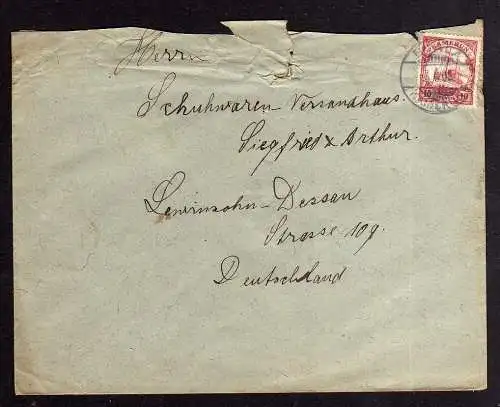 KAMERUN
10 10
Herrn
Schuhwaren Versandhaus.
Siegfried & Arthur.
Lewinsohn-Dessau
Strasse 109.
Deutschland